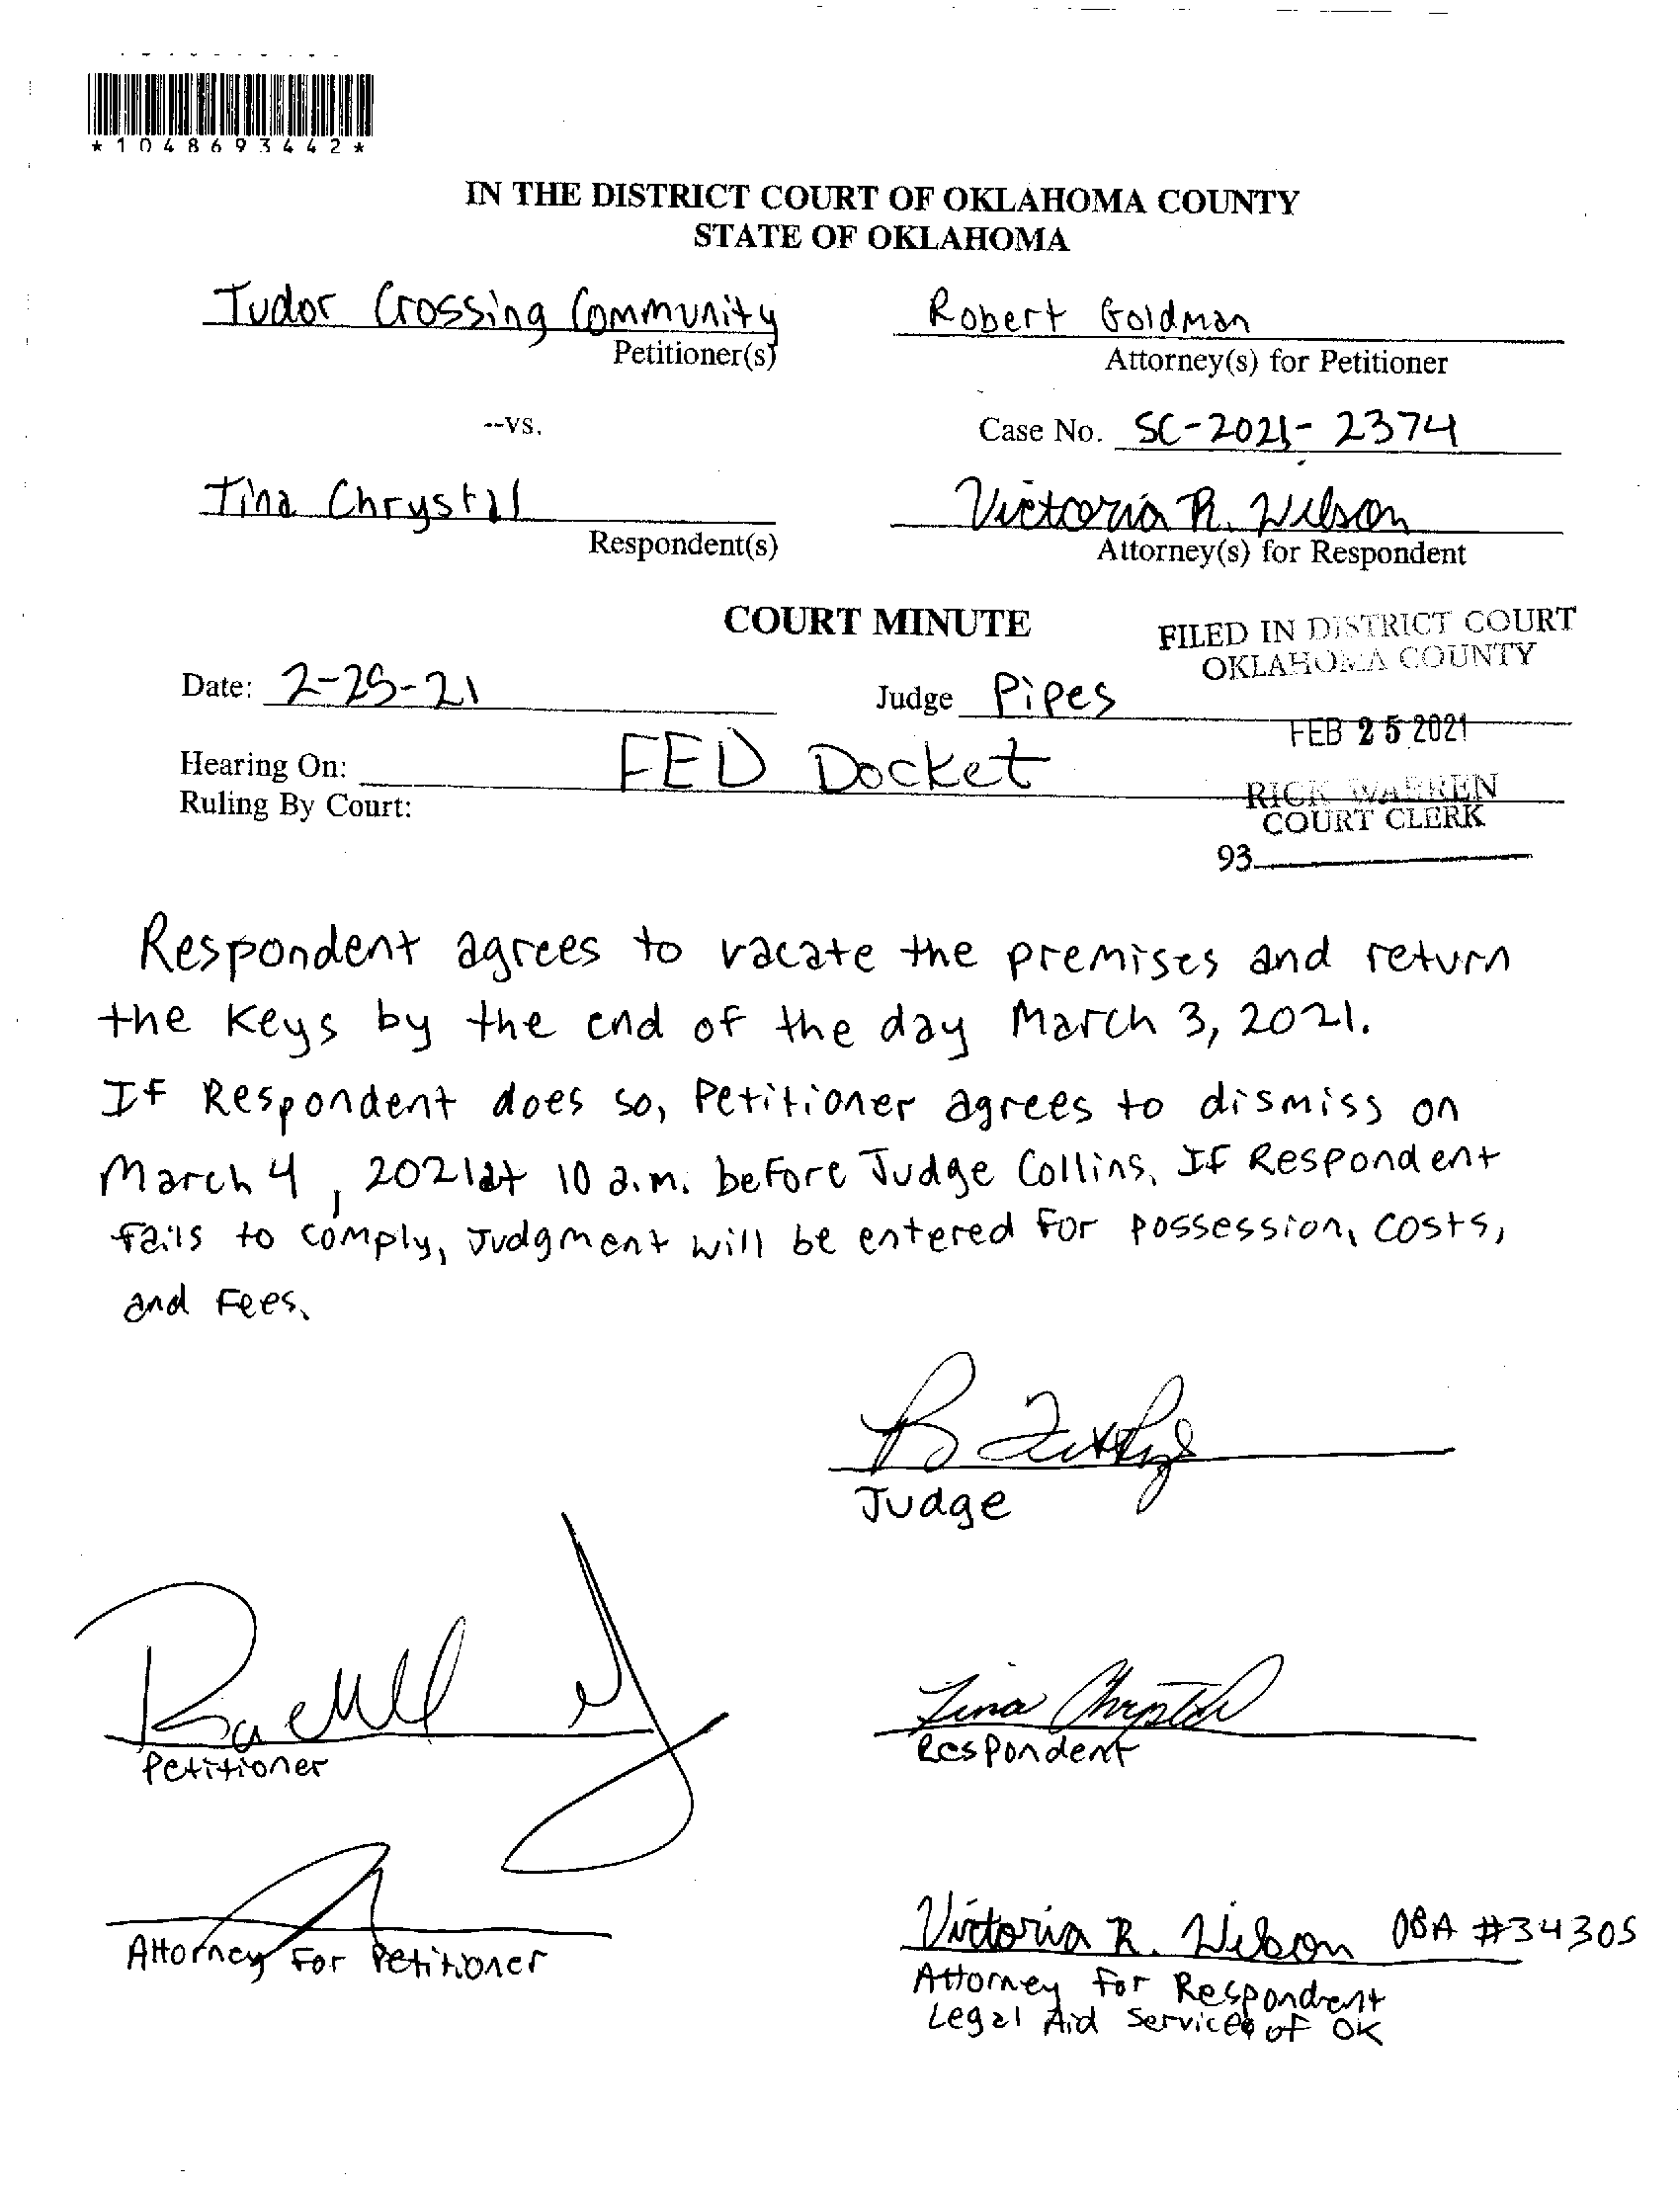 *1048693442*
IN THE DISTRICT COURT OF OKLAHOMA COUNTY
STATE OF OKLAHOMA
Tudor Crossing Community
Petitioner(s)
Robert Goldman
Attorney(s) for Petitioner
--vs.
Case No. SC-2021- 2374
Tina Chrystal
Respondent(s)
Victoria R. Wilson
Attorney(s) for Respondent
COURT MINUTE
FILED IN DISTRICT COURT
OKLAHOMA COUNTY
Date: 2-25-21
Judge Pipes
FEB 25 2021
Hearing On: FED Docket
RICK WARREN
Ruling By Court:
COURT CLERK
93
Respondent agrees to vacate the premises and return
the keys by the end of the day March 3, 2021.
If Respondent does so, Petitioner agrees to dismiss on
March 4, 2021 at 10 a.m. before Judge Collins. If Respondent
fails to comply, Judgment will be entered for possession, costs,
and fees.
Judge
Petitioner
Tina Chrystal
Respondent
Attorney for Petitioner
Victoria R. Wilson OBA #34305
Attorney for Respondent
Legal Aid Services of OK